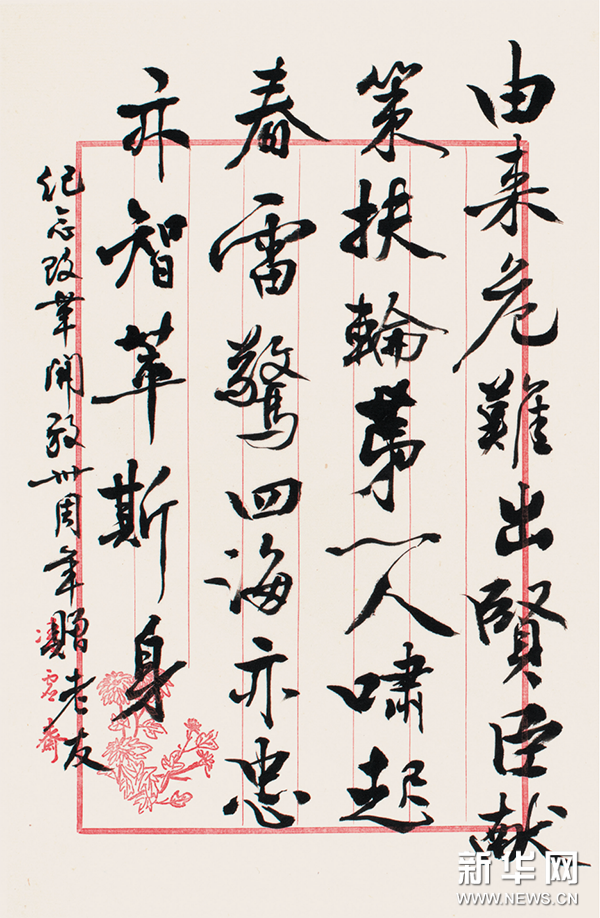 由来危難出賢臣献
策扶輪第一人嘯起
春雷驚四海亦忠
亦智萃斯身
纪念改革開放卅周年贈老友
凌雲齋
新华网
WWW.NEWS.CN